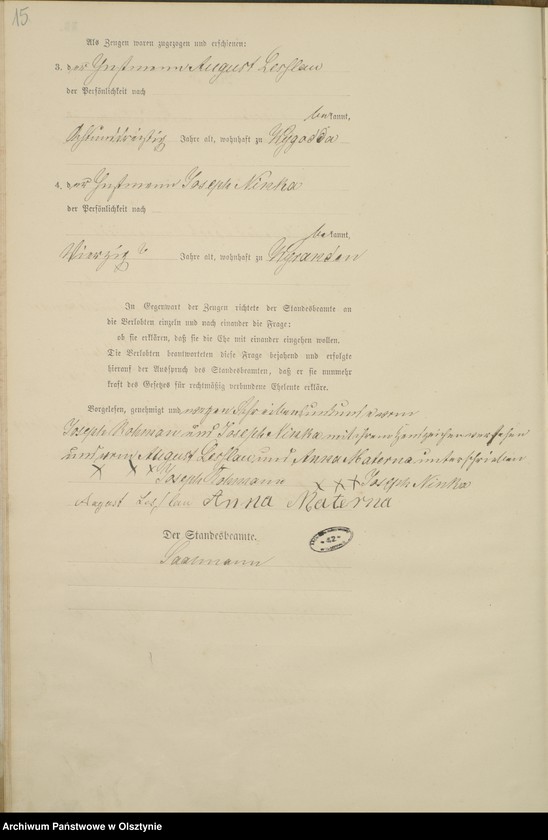 15
Als Zeugen waren zugezogen und erschienen:
3. der Instmann August Leschlau
der Persönlichkeit nach
bekannt,
Achtunddreißig Jahre alt, wohnhaft zu Wygodda
4. der Instmann Joseph Ninka
der Persönlichkeit nach
bekannt,
Vierzig Jahre alt, wohnhaft zu
In Gegenwart der Zeugen richtete der Standesbeamte an
die Verlobten einzeln und nach einander die Frage:
ob sie erklären, daß sie die Ehe mit einander eingehen wollen.
Die Verlobten beantworteten diese Frage bejahend und erfolgte
hierauf der Ausspruch des Standesbeamten, daß er sie nunmehr
kraft des Gesetzes für rechtmäßig verbundene Eheleute erkläre.
Vorgelesen, genehmigt und wegen Schreibensunkunde vom
Joseph und Joseph Ninka mit ihrem Handzeichen versehen
und vom August Leschlau und Anna Materna unterschrieben
x x x Joseph x x x Joseph Ninka
August Leschlau Anna Materna
Der Standesbeamte.
Saalmann
Archiwum Państwowe w Olsztynie